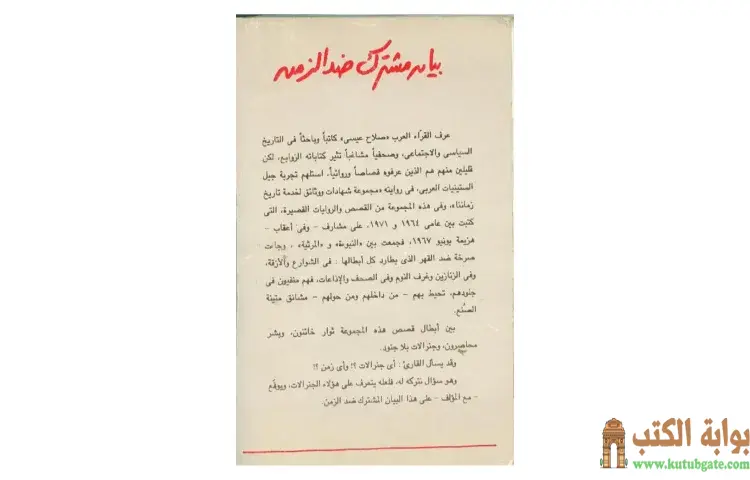 بيان مشترك ضد الزمن
عرف القرّاء العرب «صلاح عيسى» كاتباً وباحثاً فى التاريخ
السياسى والاجتماعى، وصحفياً مشاغباً تثير كتاباته الزوابع، لكن
قليلين منهم هم الذين عرفوه قصاصاً وروائياً، استلهم تجربة جيل
الستينيات العربى، فى روايته «مجموعة شهادات ووثائق لخدمة تاريخ
زماننا»، وفى هذه المجموعة من القصص والروايات القصيرة، التى
كتبت بين عامى ١٩٦٤ و ١٩٧١، على مشارف - وفى أعقاب -
هزيمة يونيو ١٩٦٧، فجمعت بين «النبوءة» و «المرثية» ، وجاءت
صرخة ضد القهر الذى يطارد كل أبطالها : فى الشوارع والأزقة،
وفى الزنازين وغرف النوم وفى الصحف والإذاعات، فهم منفيون فى
جلودهم، تحيط بهم - من داخلهم ومن حولهم - مشانق متينة
الصُنع.
بين أبطال قصص هذه المجموعة ثوار خائنون، وبشر
محاصرون، وجنرالات بلا جنود.
وقد يسأل القارئ : أى جنرالات ؟! وأى زمن ؟!
وهو سؤال نتركه له، فلعله يتعرف على هؤلاء الجنرالات، ويوقّع
- مع المؤلف - على هذا البيان المشترك ضد الزمن.
بوابة الكتب
www.kutubgate.com